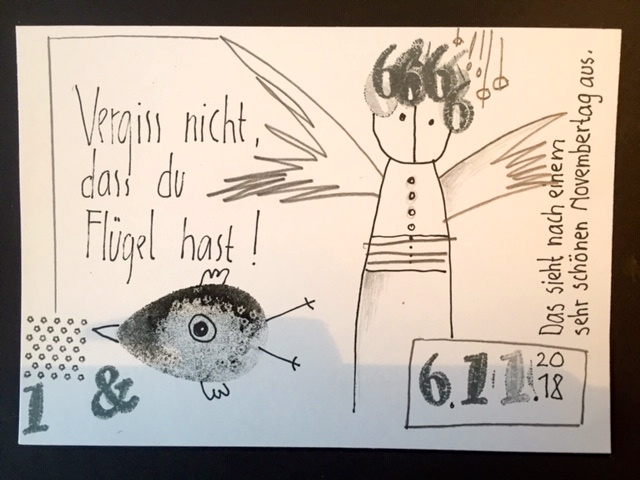 Vergiss nicht,
dass du
Flügel hast !
6 6 6 6
Das sieht nach einem
sehr schönen Novembertag aus.
1 &
6.11.2018